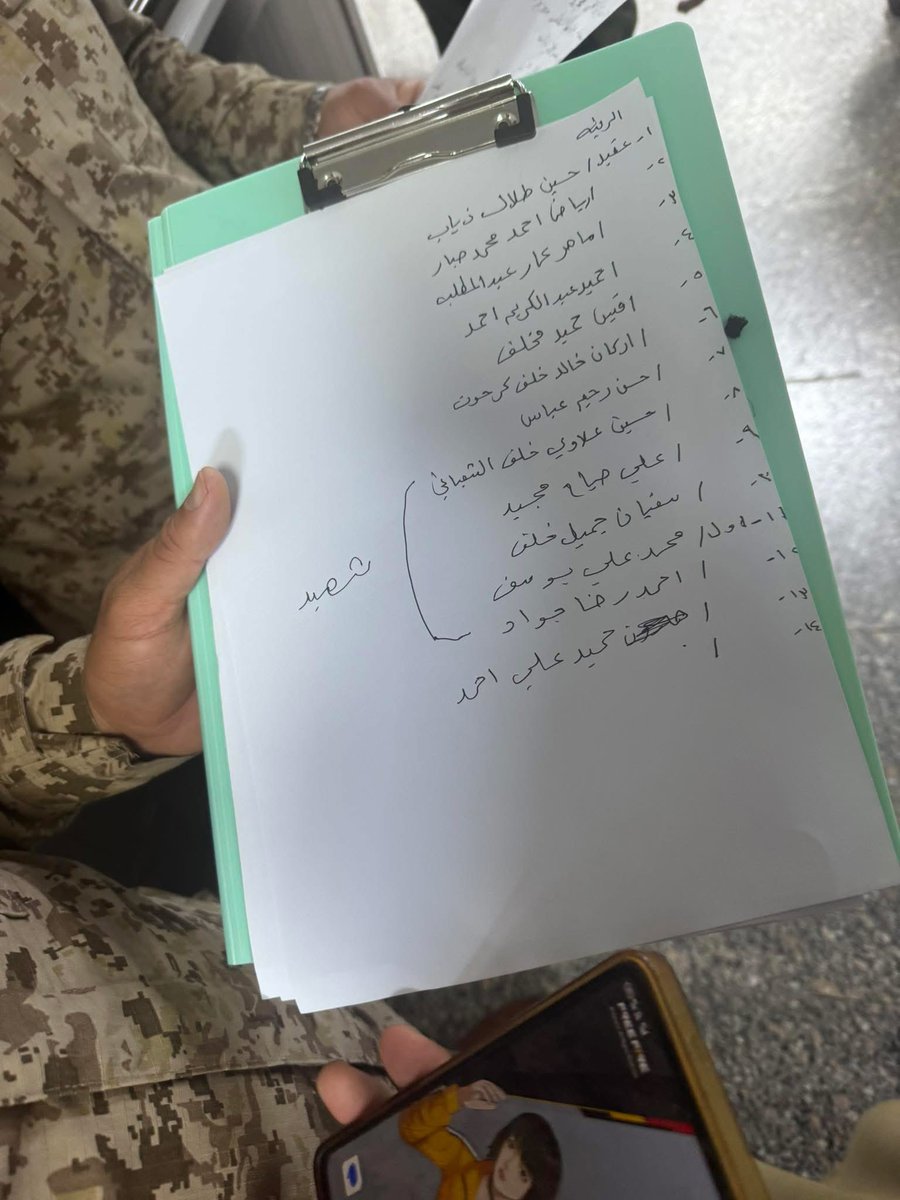 الرتبه
١- عقيد / حسين طلال ذياب
٢- / رياض احمد محمد صبار
٣- / ماهر عمار عبدالمطلب
٤- / حميد عبدالكريم احمد
٥- / حميد مخلف
٦- / اركان خالد خلف كرحوت
٧- / حسن رحيم عباس
٨- / حسين علاوي خلف
٩- / علي صياح مجيد
/ سفيان جميل خلف
١١- م اول / محمد علي يوسف
١٢- / احمد رضا جواد
١٣- / حميد علي احمد
١٤- /
شهيد